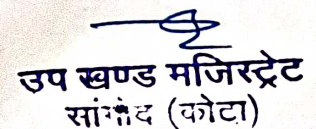 उप खण्ड मजिस्ट्रेट
सांगोद (कोटा)